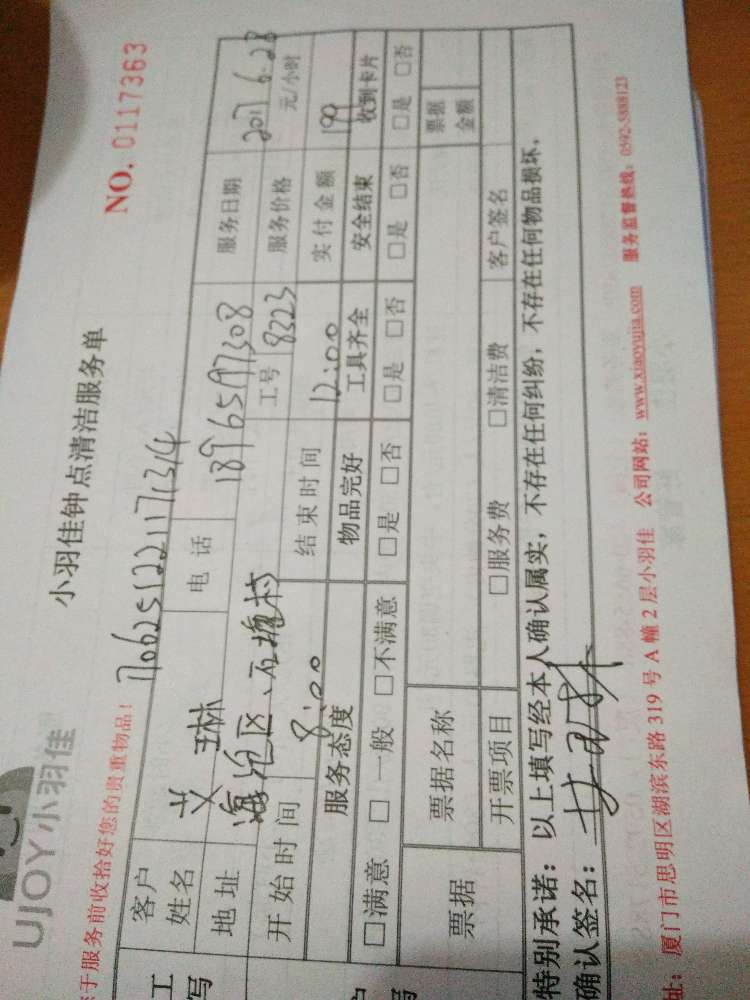 UJOY小羽佳
小羽佳钟点清洁服务单
NO. 0117363
于服务前收拾好您的贵重物品!
1706251221171314
客户姓名 电话 18965197308 服务日期 2017.6.28
地址 海沧区、石塘村 工号 8323 服务价格 元/小时
开始时间 8:00 结束时间 12:00 实付金额 199
服务态度 物品完好 工具齐全 安全结束 收到卡片
□满意 □一般 □不满意 □是 □否 □是 □否 □是 □否 □是 □否
票据 票据名称 票据金额
开票项目 □服务费 □清洁费 客户签名
特别承诺:以上填写经本人确认属实,不存在任何纠纷,不存在任何物品损坏.
确认签名:
址:厦门市思明区湖滨东路319号A幢2层小羽佳 公司网站:www.xiaoyujia.com 服务监督热线:0592-5888123